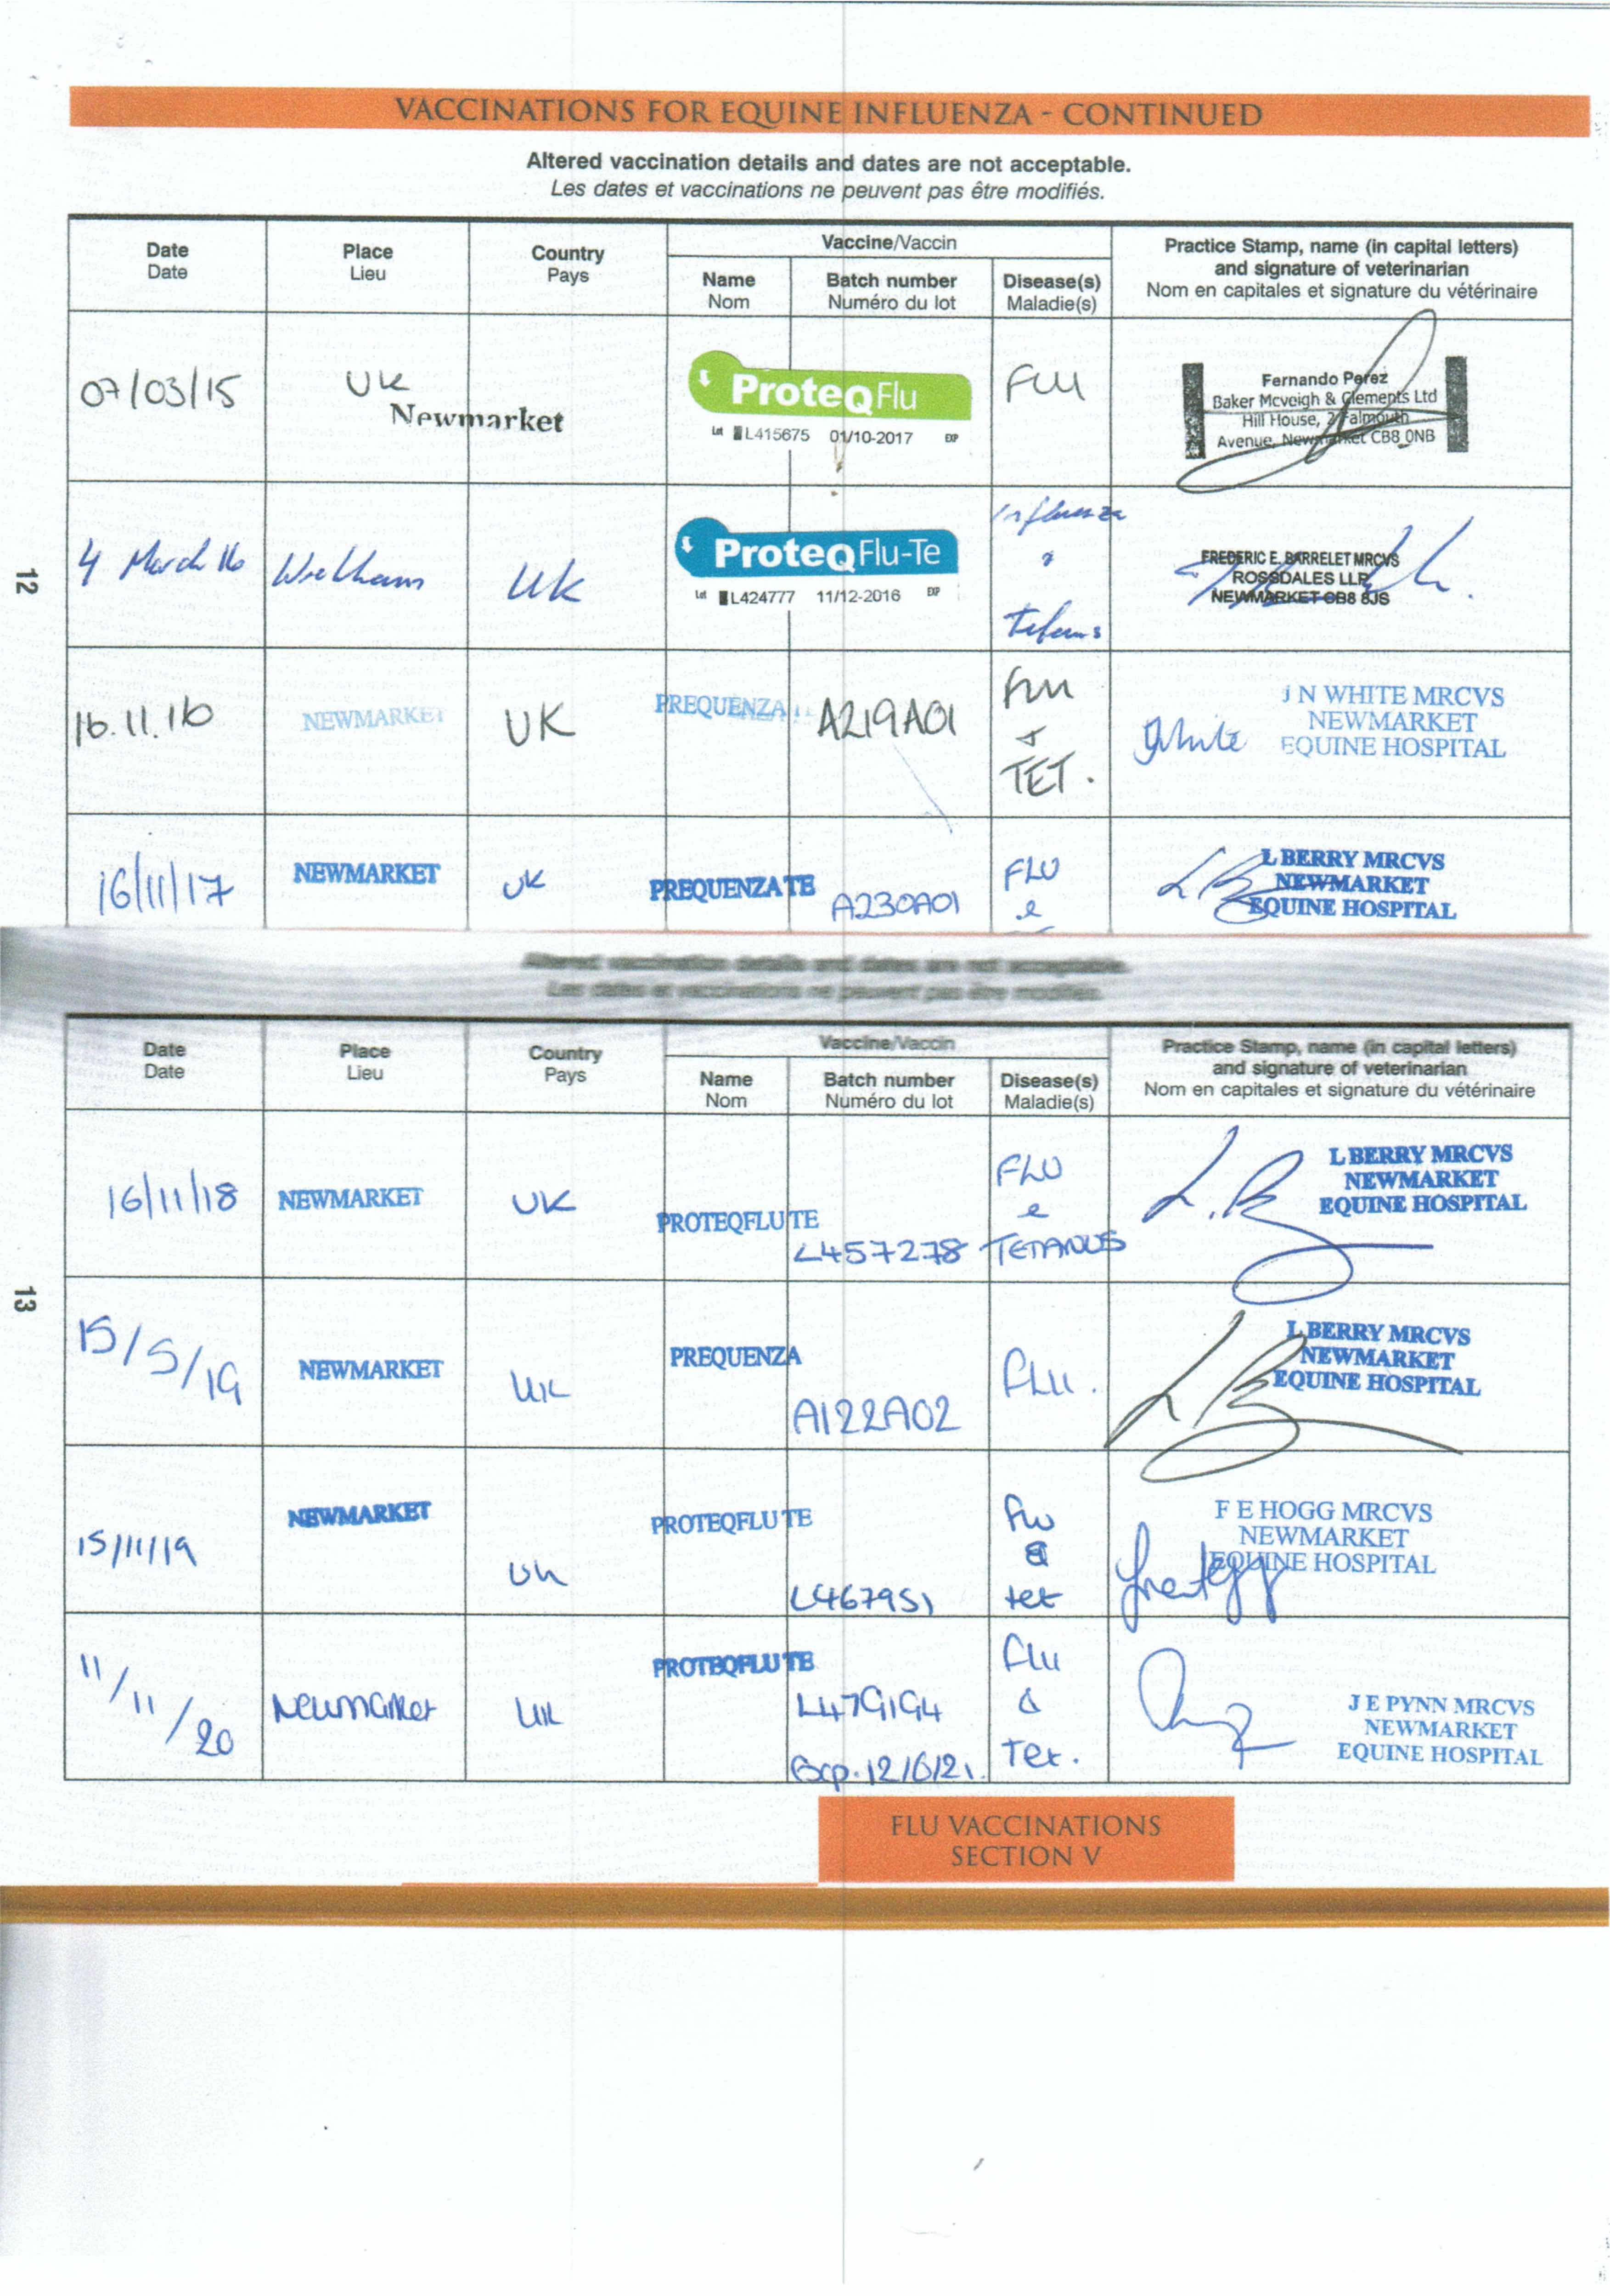 VACCINATIONS FOR EQUINE INFLUENZA - CONTINUED
Altered vaccination details and dates are not acceptable.
Les dates et vaccinations ne peuvent pas être modifiés.
Date
Date
Place
Lieu
Country
Pays
Vaccine/Vaccin
Name
Nom
Batch number
Numéro du lot
Disease(s)
Maladie(s)
Practice Stamp, name (in capital letters)
and signature of veterinarian
Nom en capitales et signature du vétérinaire
07/03/15
UK
Newmarket
ProteqFlu
Lot L415675 01/10-2017 EXP
Flu
Fernando Perez
Baker Mcveigh & Clements Ltd
Hill House, 2 Falmouth
Avenue, Newmarket CB8 0NB
12
4 March 16
UK
ProteqFlu-Te
Lot L424777 11/12-2016 EXP
Influenza
FREDERIC E. BARRELET MRCVS
ROSSDALES LLP
NEWMARKET CB8 8JS
16.11.16
NEWMARKET
UK
PREQUENZA
A219A01
Flu
&
TET.
White
J N WHITE MRCVS
NEWMARKET
EQUINE HOSPITAL
16/11/17
NEWMARKET
UK
PREQUENZA TE
A230A01
FLU
L BERRY MRCVS
NEWMARKET
EQUINE HOSPITAL
Altered vaccination details and dates are not acceptable.
Les dates et vaccinations ne peuvent pas être modifiés.
Date
Date
Place
Lieu
Country
Pays
Vaccine/Vaccin
Name
Nom
Batch number
Numéro du lot
Disease(s)
Maladie(s)
Practice Stamp, name (in capital letters)
and signature of veterinarian
Nom en capitales et signature du vétérinaire
16/11/18
NEWMARKET
UK
PROTEQFLU TE
L457278
FLU
e
TETANUS
L BERRY MRCVS
NEWMARKET
EQUINE HOSPITAL
13
15/5/19
NEWMARKET
UK
PREQUENZA
A122A02
FLU.
L BERRY MRCVS
NEWMARKET
EQUINE HOSPITAL
15/11/19
NEWMARKET
UK
PROTEQFLU TE
L467951
Flu
&
tet
F E HOGG MRCVS
NEWMARKET
EQUINE HOSPITAL
11/11/20
Newmarket
UK
PROTEQFLU TE
L479194
Exp. 12/6/21.
Flu
&
Tet.
J E PYNN MRCVS
NEWMARKET
EQUINE HOSPITAL
FLU VACCINATIONS
SECTION V